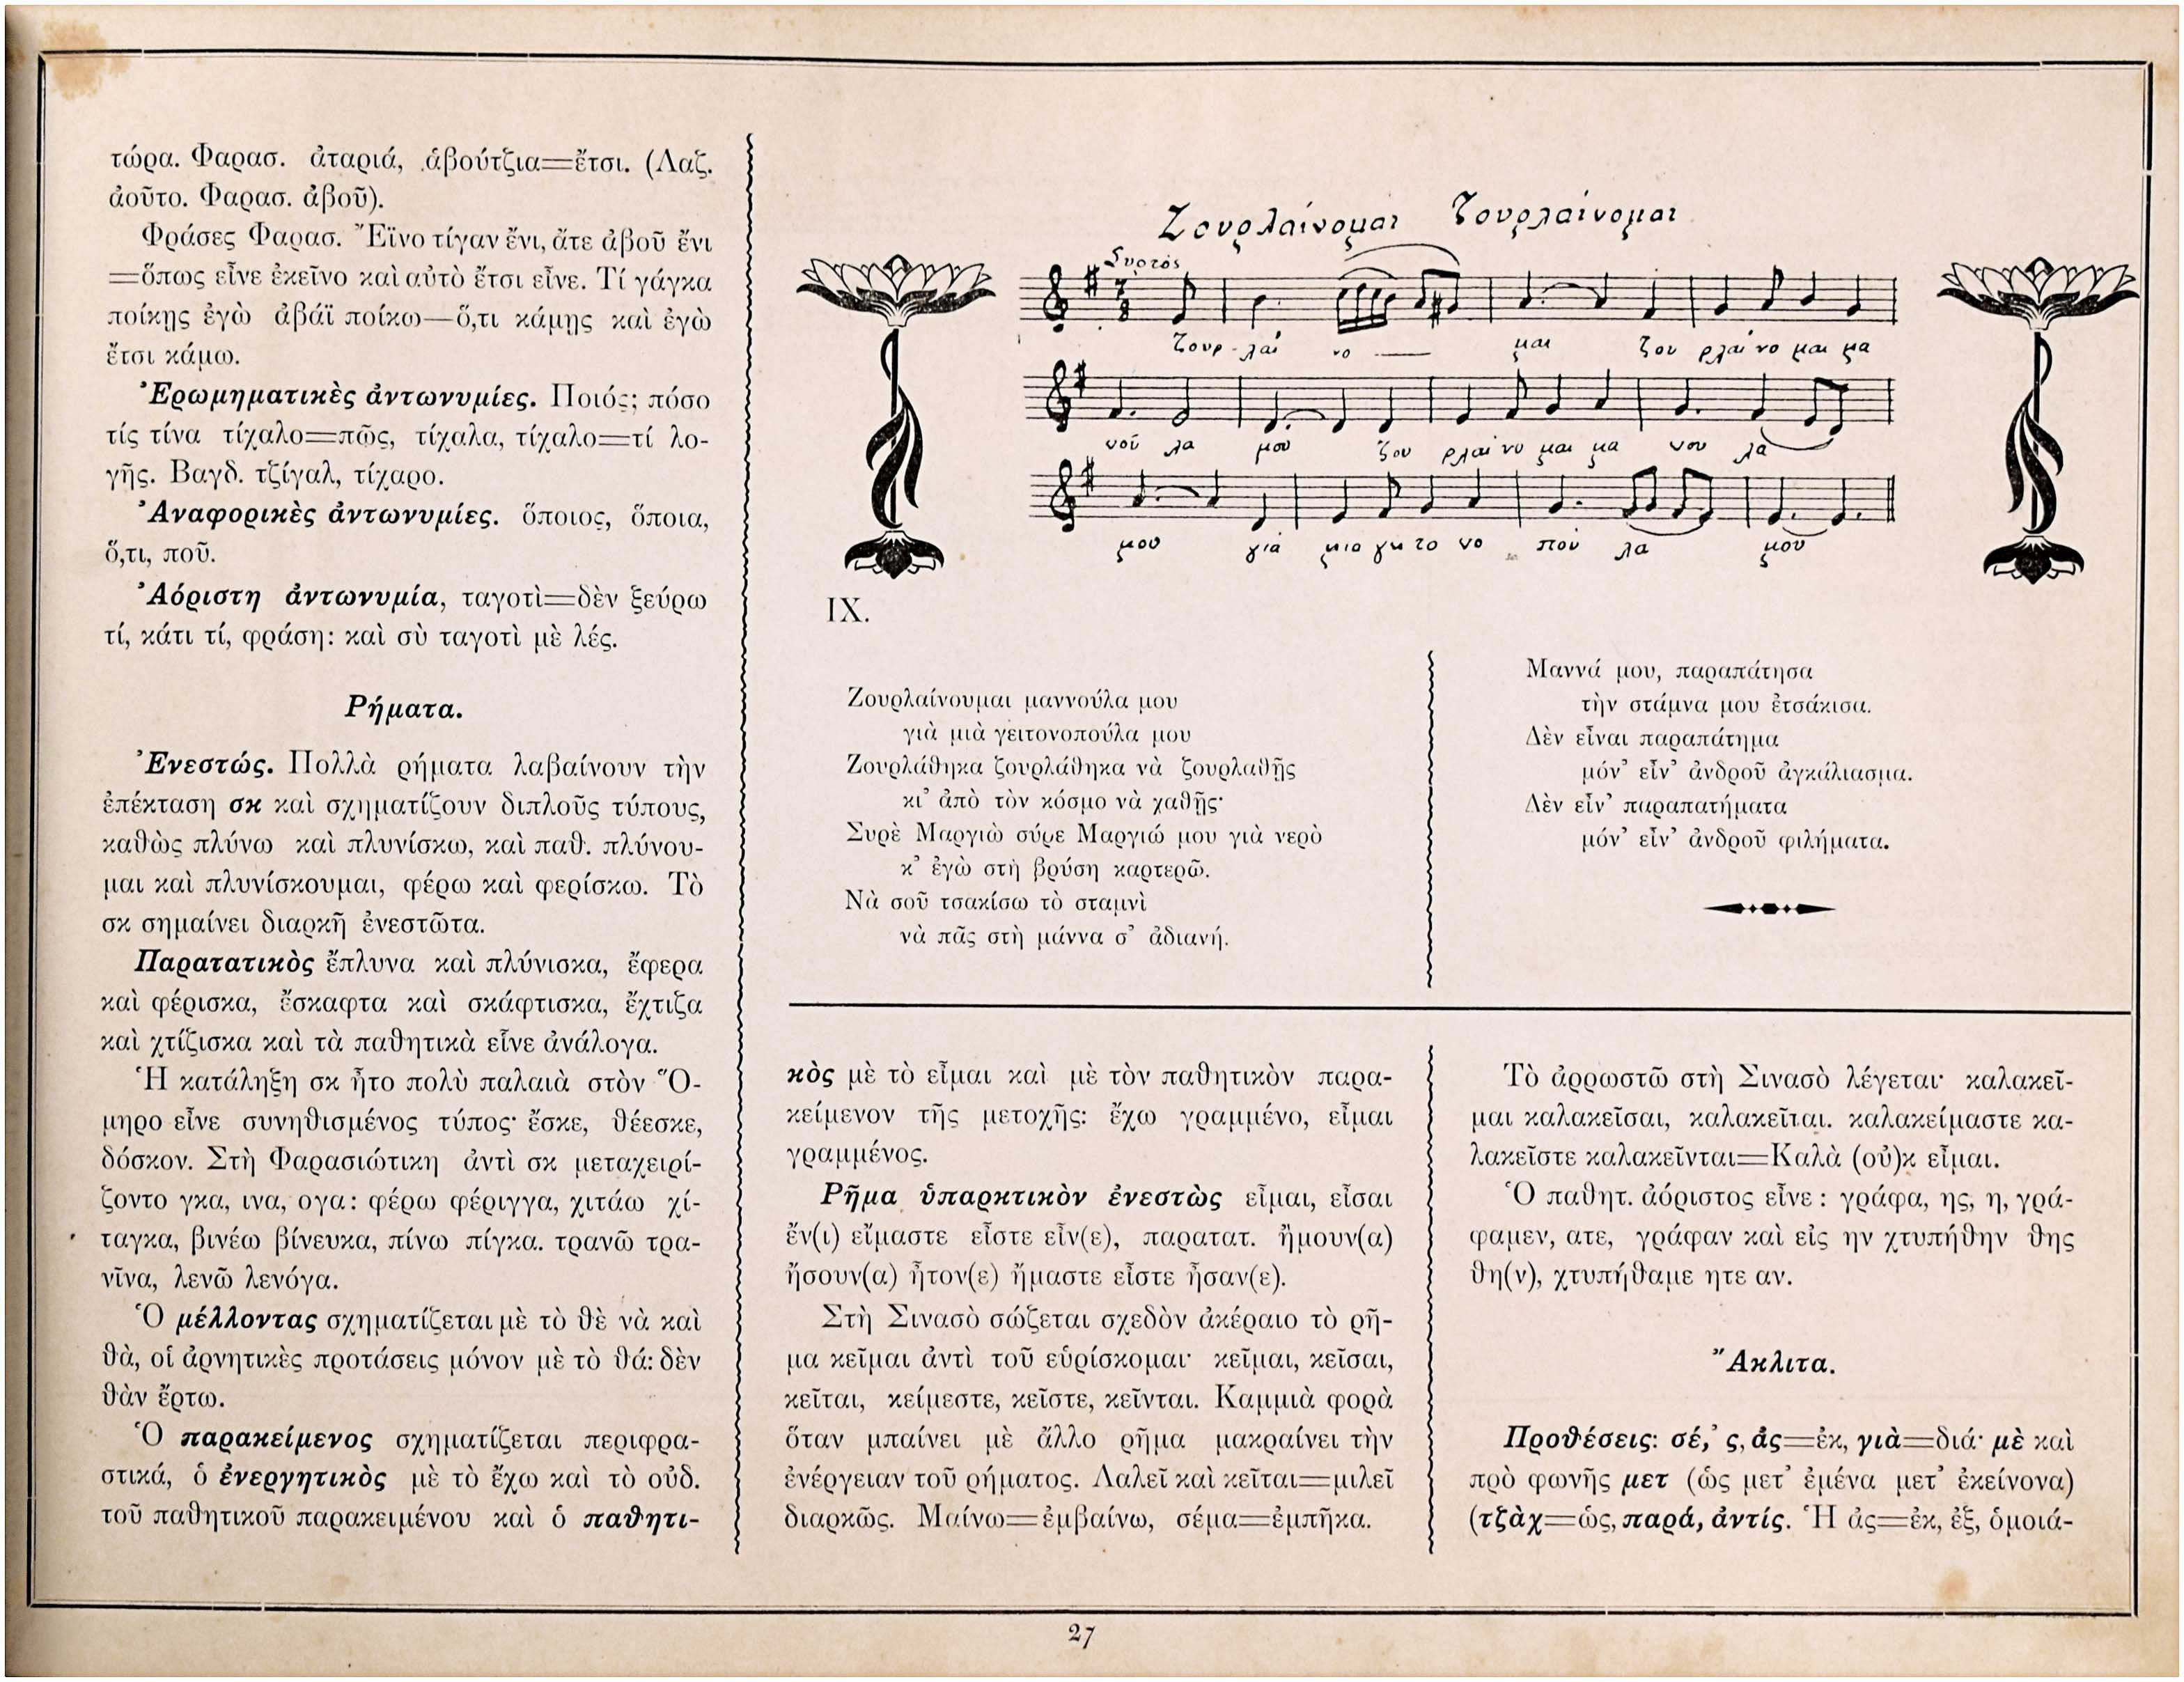 τώρα. Φαρασ. ἀταριά, ἀβούτζια=ἔτσι. (Λαζ.
ἀοῦτο. Φαρασ. ἀβοῦ).
Φράσες Φαρασ. Ἔϊνο τίγαν ἔνι, ἄτε ἀβοῦ ἔνι
=ὅπως εἶνε ἐκεῖνο καὶ αὐτὸ ἔτσι εἶνε. Τί γάγκα
ποίκης ἐγὼ ἀβάϊ ποίκω—ὅ,τι κάμῃς καὶ ἐγὼ
ἔτσι κάμω.
Ἐρωμηματικὲς ἀντωνυμίες. Ποιός; πόσο
τίς τίνα τίχαλο=πῶς, τίχαλα, τίχαλο=τί λο-
γῆς. Βαγδ. τζίγαλ, τίχαρο.
Ἀναφορικὲς ἀντωνυμίες. ὅποιος, ὅποια,
ὅ,τι, ποῦ.
Ἀόριστη ἀντωνυμία, ταγοτὶ=δὲν ξεύρω
τί, κάτι τί, φράση: καὶ σὺ ταγοτὶ μὲ λές.
Ρήματα.
Ἐνεστώς. Πολλὰ ρήματα λαβαίνουν τὴν
ἐπέκταση σκ καὶ σχηματίζουν διπλοῦς τύπους,
καθὼς πλύνω καὶ πλυνίσκω, καὶ παθ. πλύνου-
μαι καὶ πλυνίσκουμαι, φέρω καὶ φερίσκω. Τὸ
σκ σημαίνει διαρκῆ ἐνεστῶτα.
Παρατατικὸς ἔπλυνα καὶ πλύνισκα, ἔφερα
καὶ φέρισκα, ἔσκαφτα καὶ σκάφτισκα, ἔχτιζα
καὶ χτίζισκα καὶ τὰ παθητικὰ εἶνε ἀνάλογα.
Ἡ κατάληξη σκ ἦτο πολὺ παλαιὰ στὸν Ὅ-
μηρο εἶνε συνηθισμένος τύπος· ἔσκε, θέεσκε,
δόσκον. Στὴ Φαρασιώτικη ἀντὶ σκ μεταχειρί-
ζοντο γκα, ινα, ογα: φέρω φέριγγα, χιτάω χί-
ταγκα, βινέω βίνευκα, πίνω πίγκα. τρανῶ τρα-
νῖνα, λενῶ λενόγα.
Ὁ μέλλοντας σχηματίζεται μὲ τὸ θὲ νὰ καὶ
θὰ, οἱ ἀρνητικὲς προτάσεις μόνον μὲ τὸ θά: δὲν
θὰν ἔρτω.
Ὁ παρακείμενος σχηματίζεται περιφρα-
στικά, ὁ ἐνεργητικὸς μὲ τὸ ἔχω καὶ τὸ οὐδ.
τοῦ παθητικοῦ παρακειμένου καὶ ὁ παθητι-
Ζουρλαίνομαι ζουρλαίνομαι
Συρτός
7
8
ζουρ-λαί νο — μαι ζου ρλαί νο μαι μα
νοῦ λα μου ζου ρλαί νο μαι μα νου λα
μου γιὰ μια γει το νο που λα μου
IX.
Ζουρλαίνουμαι μαννούλα μου
γιὰ μιὰ γειτονοπούλα μου
Ζουρλάθηκα ζουρλάθηκα νὰ ζουρλαθῇς
κι’ ἀπὸ τὸν κόσμο νὰ χαθῇς·
Συρὲ Μαργιὼ σύρε Μαργιώ μου γιὰ νερὸ
κ’ ἐγὼ στὴ βρύση καρτερῶ.
Νὰ σοῦ τσακίσω τὸ σταμνὶ
νὰ πᾶς στὴ μάννα σ’ ἀδιανή.
Μαννά μου, παραπάτησα
τὴν στάμνα μου ἐτσάκισα.
Δὲν εἶναι παραπάτημα
μόν’ εἶν’ ἀνδροῦ ἀγκάλιασμα.
Δὲν εἶν’ παραπατήματα
μόν’ εἶν’ ἀνδροῦ φιλήματα.
κὸς μὲ τὸ εἶμαι καὶ μὲ τὸν παθητικὸν παρα-
κείμενον τῆς μετοχῆς: ἔχω γραμμένο, εἶμαι
γραμμένος.
Ρῆμα ὑπαρκτικὸν ἐνεστὼς εἶμαι, εἶσαι
ἔν(ι) εἴμαστε εἶστε εἶν(ε), παρατατ. ἤμουν(α)
ἤσουν(α) ἦτον(ε) ἤμαστε εἶστε ἦσαν(ε).
Στὴ Σινασὸ σώζεται σχεδὸν ἀκέραιο τὸ ρῆ-
μα κεῖμαι ἀντὶ τοῦ εὑρίσκομαι· κεῖμαι, κεῖσαι,
κεῖται, κείμεστε, κεῖστε, κεῖνται. Καμμιὰ φορὰ
ὅταν μπαίνει μὲ ἄλλο ρῆμα μακραίνει τὴν
ἐνέργειαν τοῦ ρήματος. Λαλεῖ καὶ κεῖται=μιλεῖ
διαρκῶς. Μαίνω=ἐμβαίνω, σέμα=ἐμπῆκα.
Τὸ ἀρρωστῶ στὴ Σινασὸ λέγεται· καλακεῖ-
μαι καλακεῖσαι, καλακεῖται. καλακείμαστε κα-
λακεῖστε καλακεῖνται=Καλὰ (οὐ)κ εἶμαι.
Ὁ παθητ. ἀόριστος εἶνε: γράφα, ης, η, γρά-
φαμεν, ατε, γράφαν καὶ εἰς ην χτυπήθην θης
θη(ν), χτυπήθαμε ητε αν.
Ἄκλιτα.
Προθέσεις: σέ,’ ς, ἀς=ἐκ, γιὰ=διά· μὲ καὶ
πρὸ φωνῆς μετ (ὡς μετ’ ἐμένα μετ’ ἐκείνονα)
(τζὰχ=ὡς, παρά, ἀντίς. Ἡ ἀς=ἐκ, ἐξ, ὁμοιά-
27